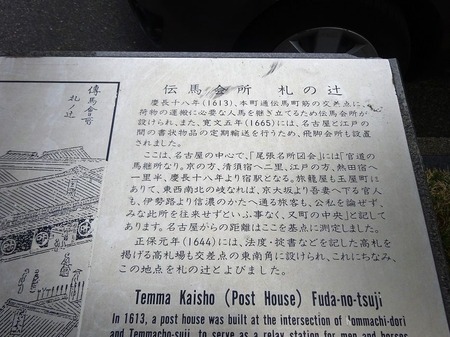 傳馬會所
札ノ辻
伝馬会所 札の辻
慶長十八年(1613)、本町通伝馬町筋の交差点に、
荷物の運搬に必要な人馬を継ぎ立てるため伝馬会所が
設けられ、また、寛文五年(1665)には、名古屋と江戸の
間の書状物品の定期輸送を行うため、飛脚会所も設置
されました。
ここは、名古屋の中心で、「尾張名所図会」には「官道の
馬継所なり。京の方、清須宿へ二里、江戸の方、熱田宿へ
一里半、慶長十八年より宿駅となる。旅籠屋も玉屋町に
ありて、東西南北の岐なれば、京大坂より吾妻へ下る官人
も、伊勢路より信濃のかたへ通る旅客も、公私を論ぜず、
みな此所を往来せずといふ事なく、又町の中央」と記して
あります。名古屋からの距離はここを基点に測定しました。
正保元年(1644)には、法度・掟書などを記した高札を
掲げる高札場も交差点の東南角に設けられ、これにちなみ、
この地点を札の辻とよびました。
Temma Kaisho (Post House) Fuda-no-tsuji
In 1613, a post house was built at the intersection of Hommachi-dori
and Temmacho-suji, to serve as a relay station for men and horses